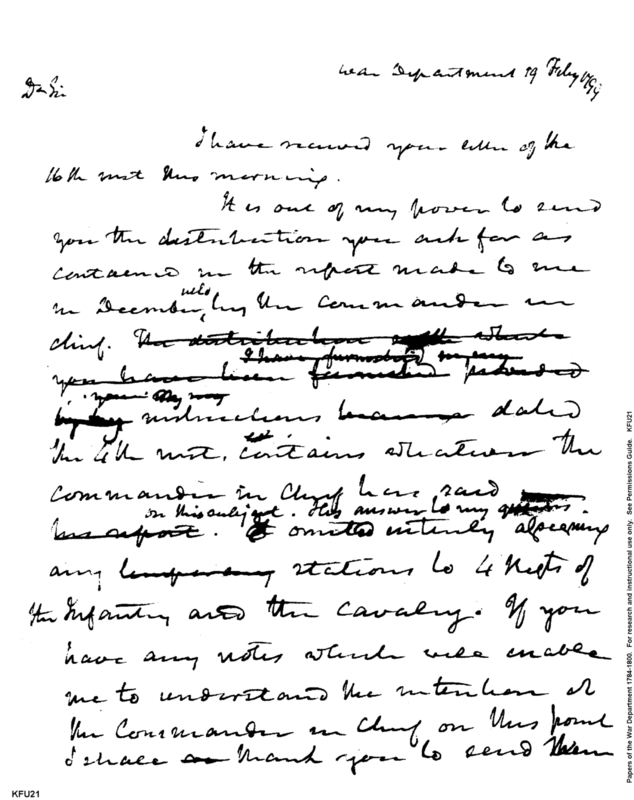 War Department 19 Feby 1799
Dr Sir
I have received your letter of the
16th inst this morning.
It is out of my power to send
you the distribution you ask for as
contained in the report made to me
in December, by the Commander in
chief. The distribution which
I have furnished in my
you have been furnished provided
your
instructions dated
the 4th inst, contains whatever the
Commander in Chief has said
on this subject. His answer to my
his report. omitted entirely assigning
any temporary stations to 4 Regts of
the Infantry and the Cavalry. If you
have any notes which will enable
me to understand the intention of
the Commander in Chief on this point
I shall thank you to send them
KFU21
Papers of the War Department 1784-1800. For research and instructional use only. See Permissions Guide. KFU21